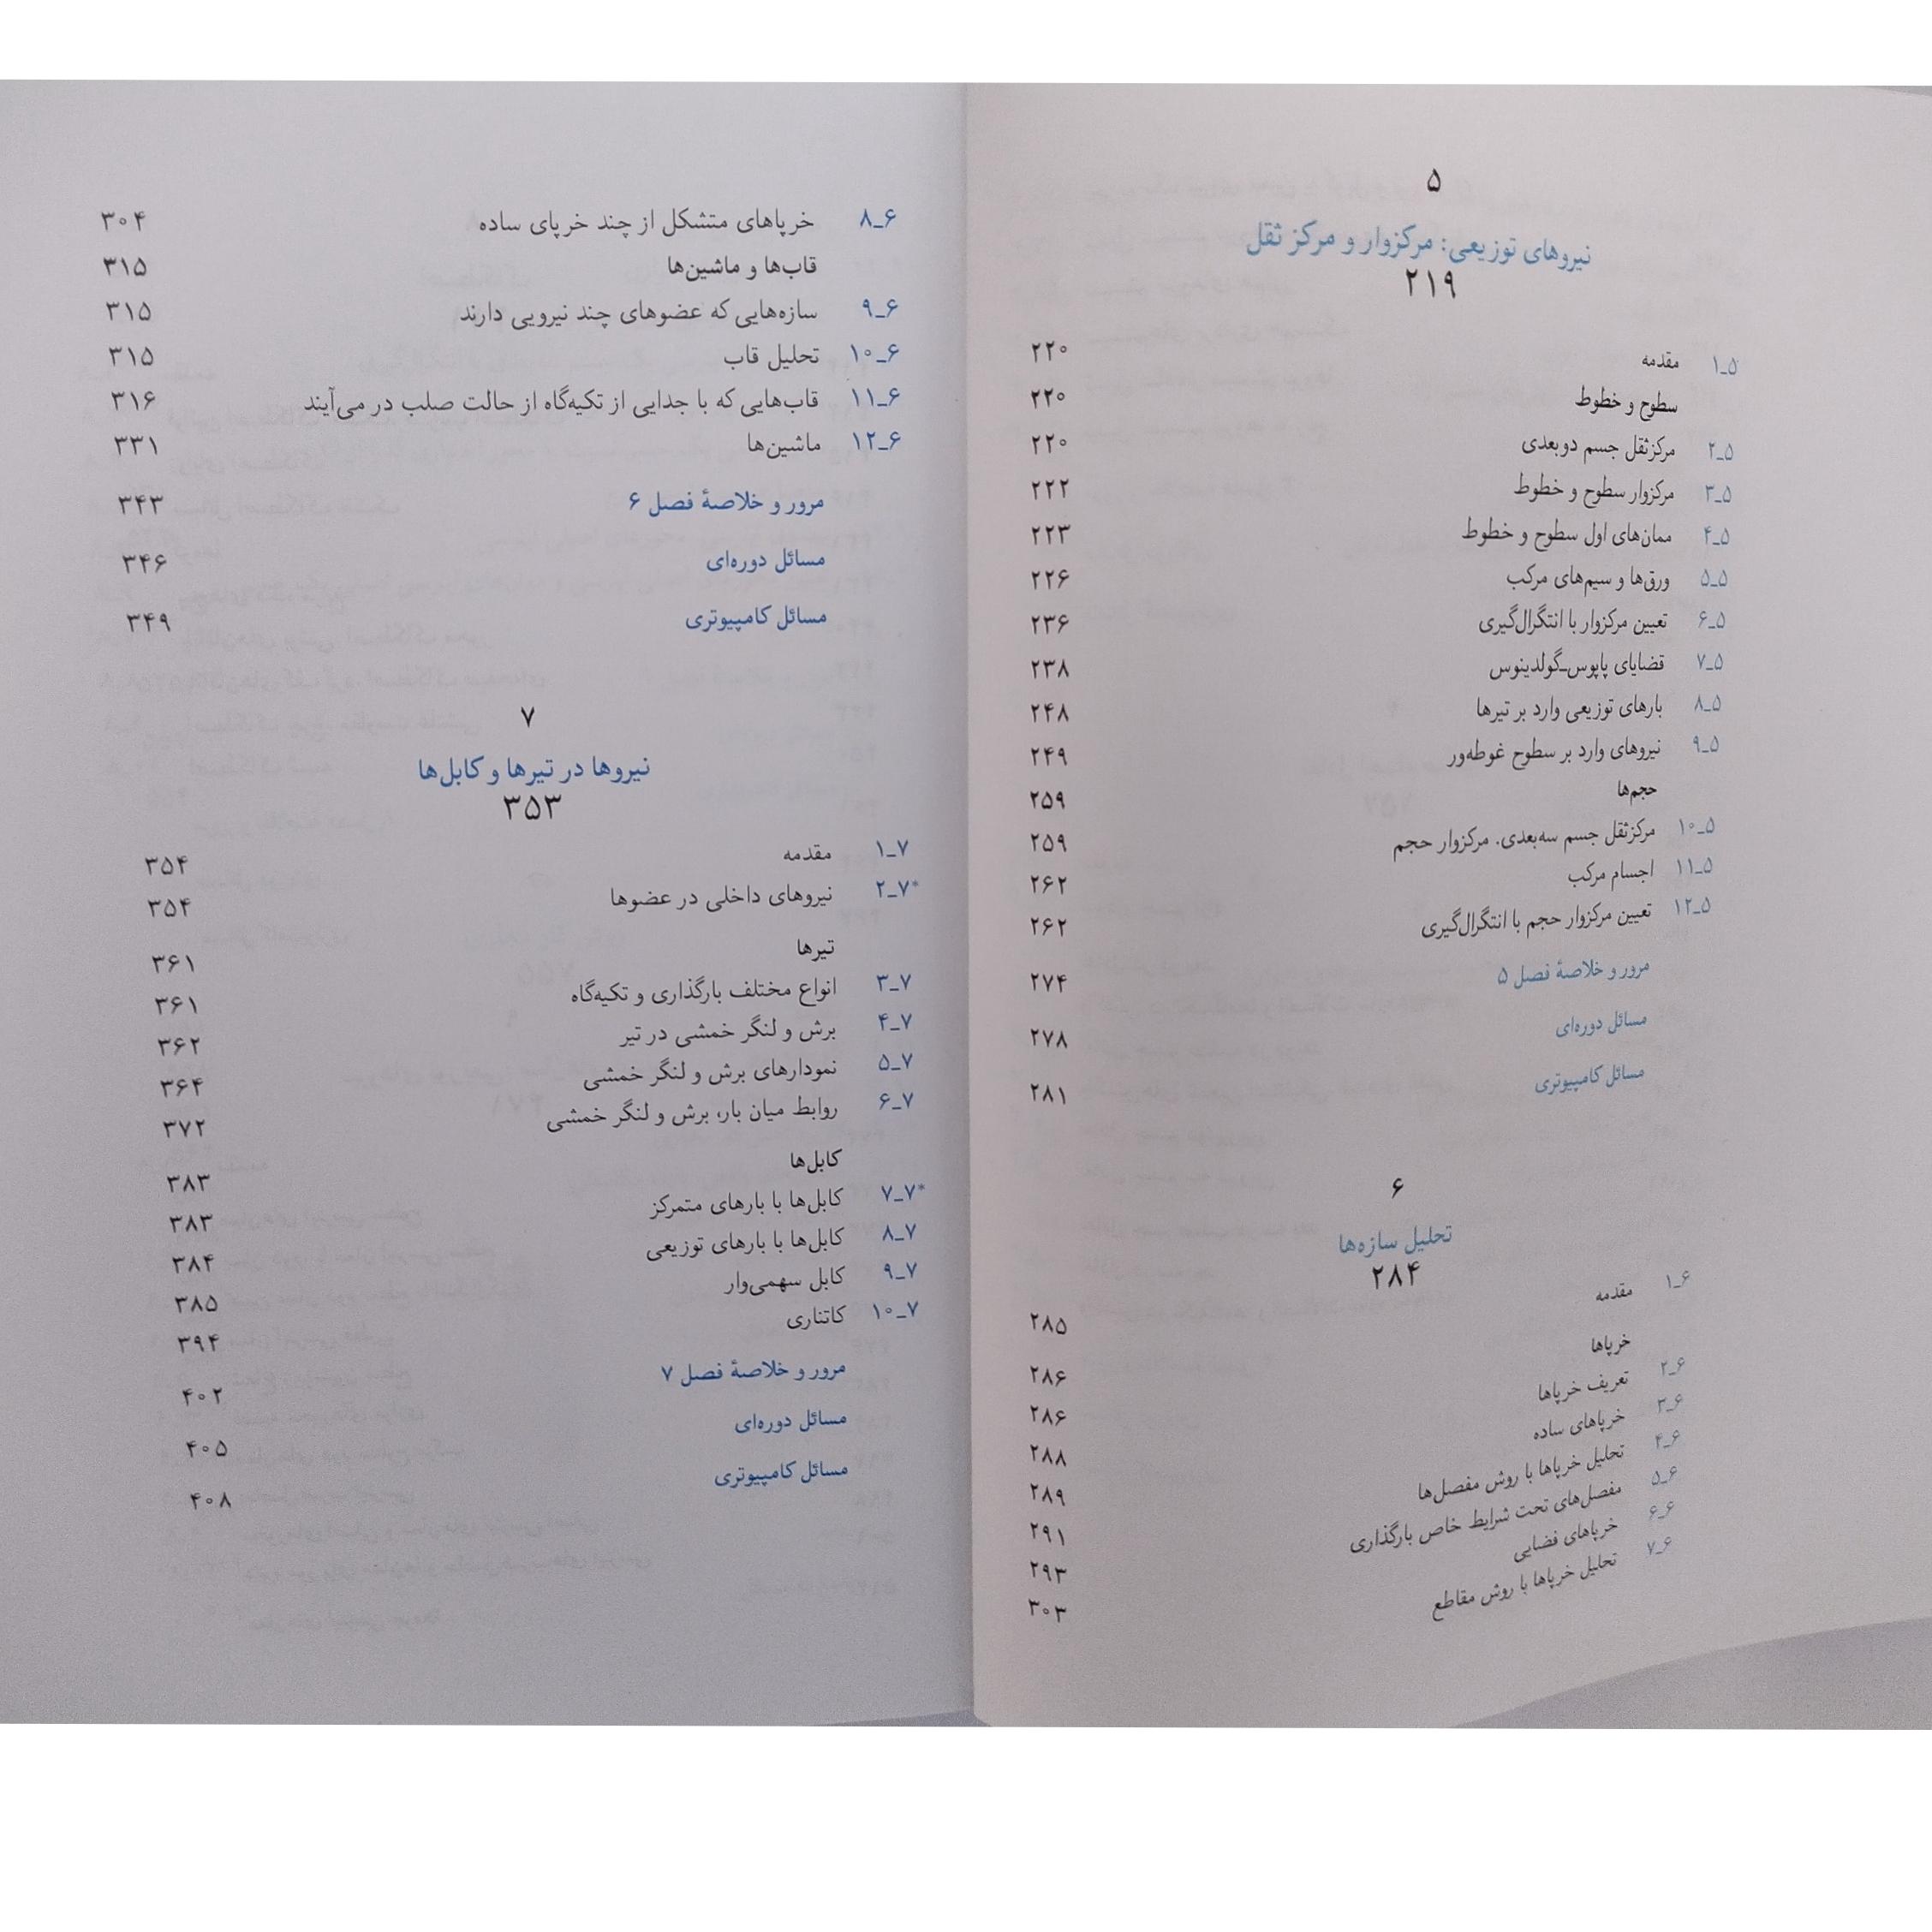 ۵
نیروهای توزیعی: مرکزوار و مرکز ثقل
۲۱۹
۵ـ۱ مقدمه ۲۲۰
سطوح و خطوط ۲۲۰
۵ـ۲ مرکزثقل جسم دوبعدی ۲۲۰
۵ـ۳ مرکزوار سطوح و خطوط ۲۲۲
۵ـ۴ ممان‌های اول سطوح و خطوط ۲۲۳
۵ـ۵ ورق‌ها و سیم‌های مرکب ۲۲۶
۵ـ۶ تعیین مرکزوار با انتگرال‌گیری ۲۳۶
۵ـ۷ قضایای پاپوس‌ـگولدینوس ۲۳۸
۵ـ۸ بارهای توزیعی وارد بر تیرها ۲۴۸
۵ـ۹ نیروهای وارد بر سطوح غوطه‌ور ۲۴۹
حجم‌ها ۲۵۹
۵ـ۱۰ مرکزثقل جسم سه‌بعدی. مرکزوار حجم ۲۵۹
۵ـ۱۱ اجسام مرکب ۲۶۲
۵ـ۱۲ تعیین مرکزوار حجم با انتگرال‌گیری ۲۶۲
مرور و خلاصهٔ فصل ۵ ۲۷۴
مسائل دوره‌ای ۲۷۸
مسائل کامپیوتری ۲۸۱
۶
تحلیل سازه‌ها
۲۸۴
۶ـ۱ مقدمه ۲۸۵
خرپاها ۲۸۶
۶ـ۲ تعریف خرپاها ۲۸۶
۶ـ۳ خرپاهای ساده ۲۸۸
۶ـ۴ تحلیل خرپاها با روش مفصل‌ها ۲۸۹
۶ـ۵ مفصل‌های تحت شرایط خاص بارگذاری ۲۹۱
۶ـ۶ خرپاهای فضایی ۲۹۳
۶ـ۷ تحلیل خرپاها با روش مقاطع ۳۰۳
۶ـ۸ خرپاهای متشکل از چند خرپای ساده ۳۰۴
قاب‌ها و ماشین‌ها ۳۱۵
۶ـ۹ سازه‌هایی که عضوهای چند نیرویی دارند ۳۱۵
۶ـ۱۰ تحلیل قاب ۳۱۵
۶ـ۱۱ قاب‌هایی که با جدایی از تکیه‌گاه از حالت صلب در می‌آیند ۳۱۶
۶ـ۱۲ ماشین‌ها ۳۳۱
مرور و خلاصهٔ فصل ۶ ۳۴۳
مسائل دوره‌ای ۳۴۶
مسائل کامپیوتری ۳۴۹
۷
نیروها در تیرها و کابل‌ها
۳۵۳
۷ـ۱ مقدمه ۳۵۴
*۷ـ۲ نیروهای داخلی در عضوها ۳۵۴
تیرها ۳۶۱
۷ـ۳ انواع مختلف بارگذاری و تکیه‌گاه ۳۶۱
۷ـ۴ برش و لنگر خمشی در تیر ۳۶۲
۷ـ۵ نمودارهای برش و لنگر خمشی ۳۶۴
۷ـ۶ روابط میان بار، برش و لنگر خمشی ۳۷۲
کابل‌ها ۳۸۳
*۷ـ۷ کابل‌ها با بارهای متمرکز ۳۸۳
۷ـ۸ کابل‌ها با بارهای توزیعی ۳۸۴
۷ـ۹ کابل سهمی‌وار ۳۸۵
۷ـ۱۰ کاتناری ۳۹۴
مرور و خلاصهٔ فصل ۷ ۴۰۲
مسائل دوره‌ای ۴۰۵
مسائل کامپیوتری ۴۰۸